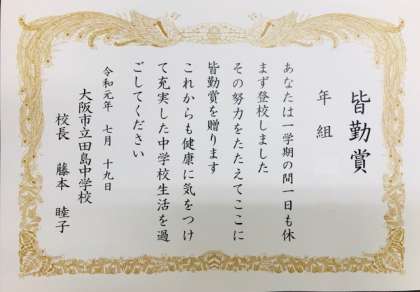 皆勤賞
年 組
あなたは一学期の間一日も休
まず登校しました
その努力をたたえてここに
皆勤賞を贈ります
これからも健康に気をつけ
て充実した中学校生活を過
ごしてください
令和元年 七月 十九日
大阪市立田島中学校
校長 藤本 睦子